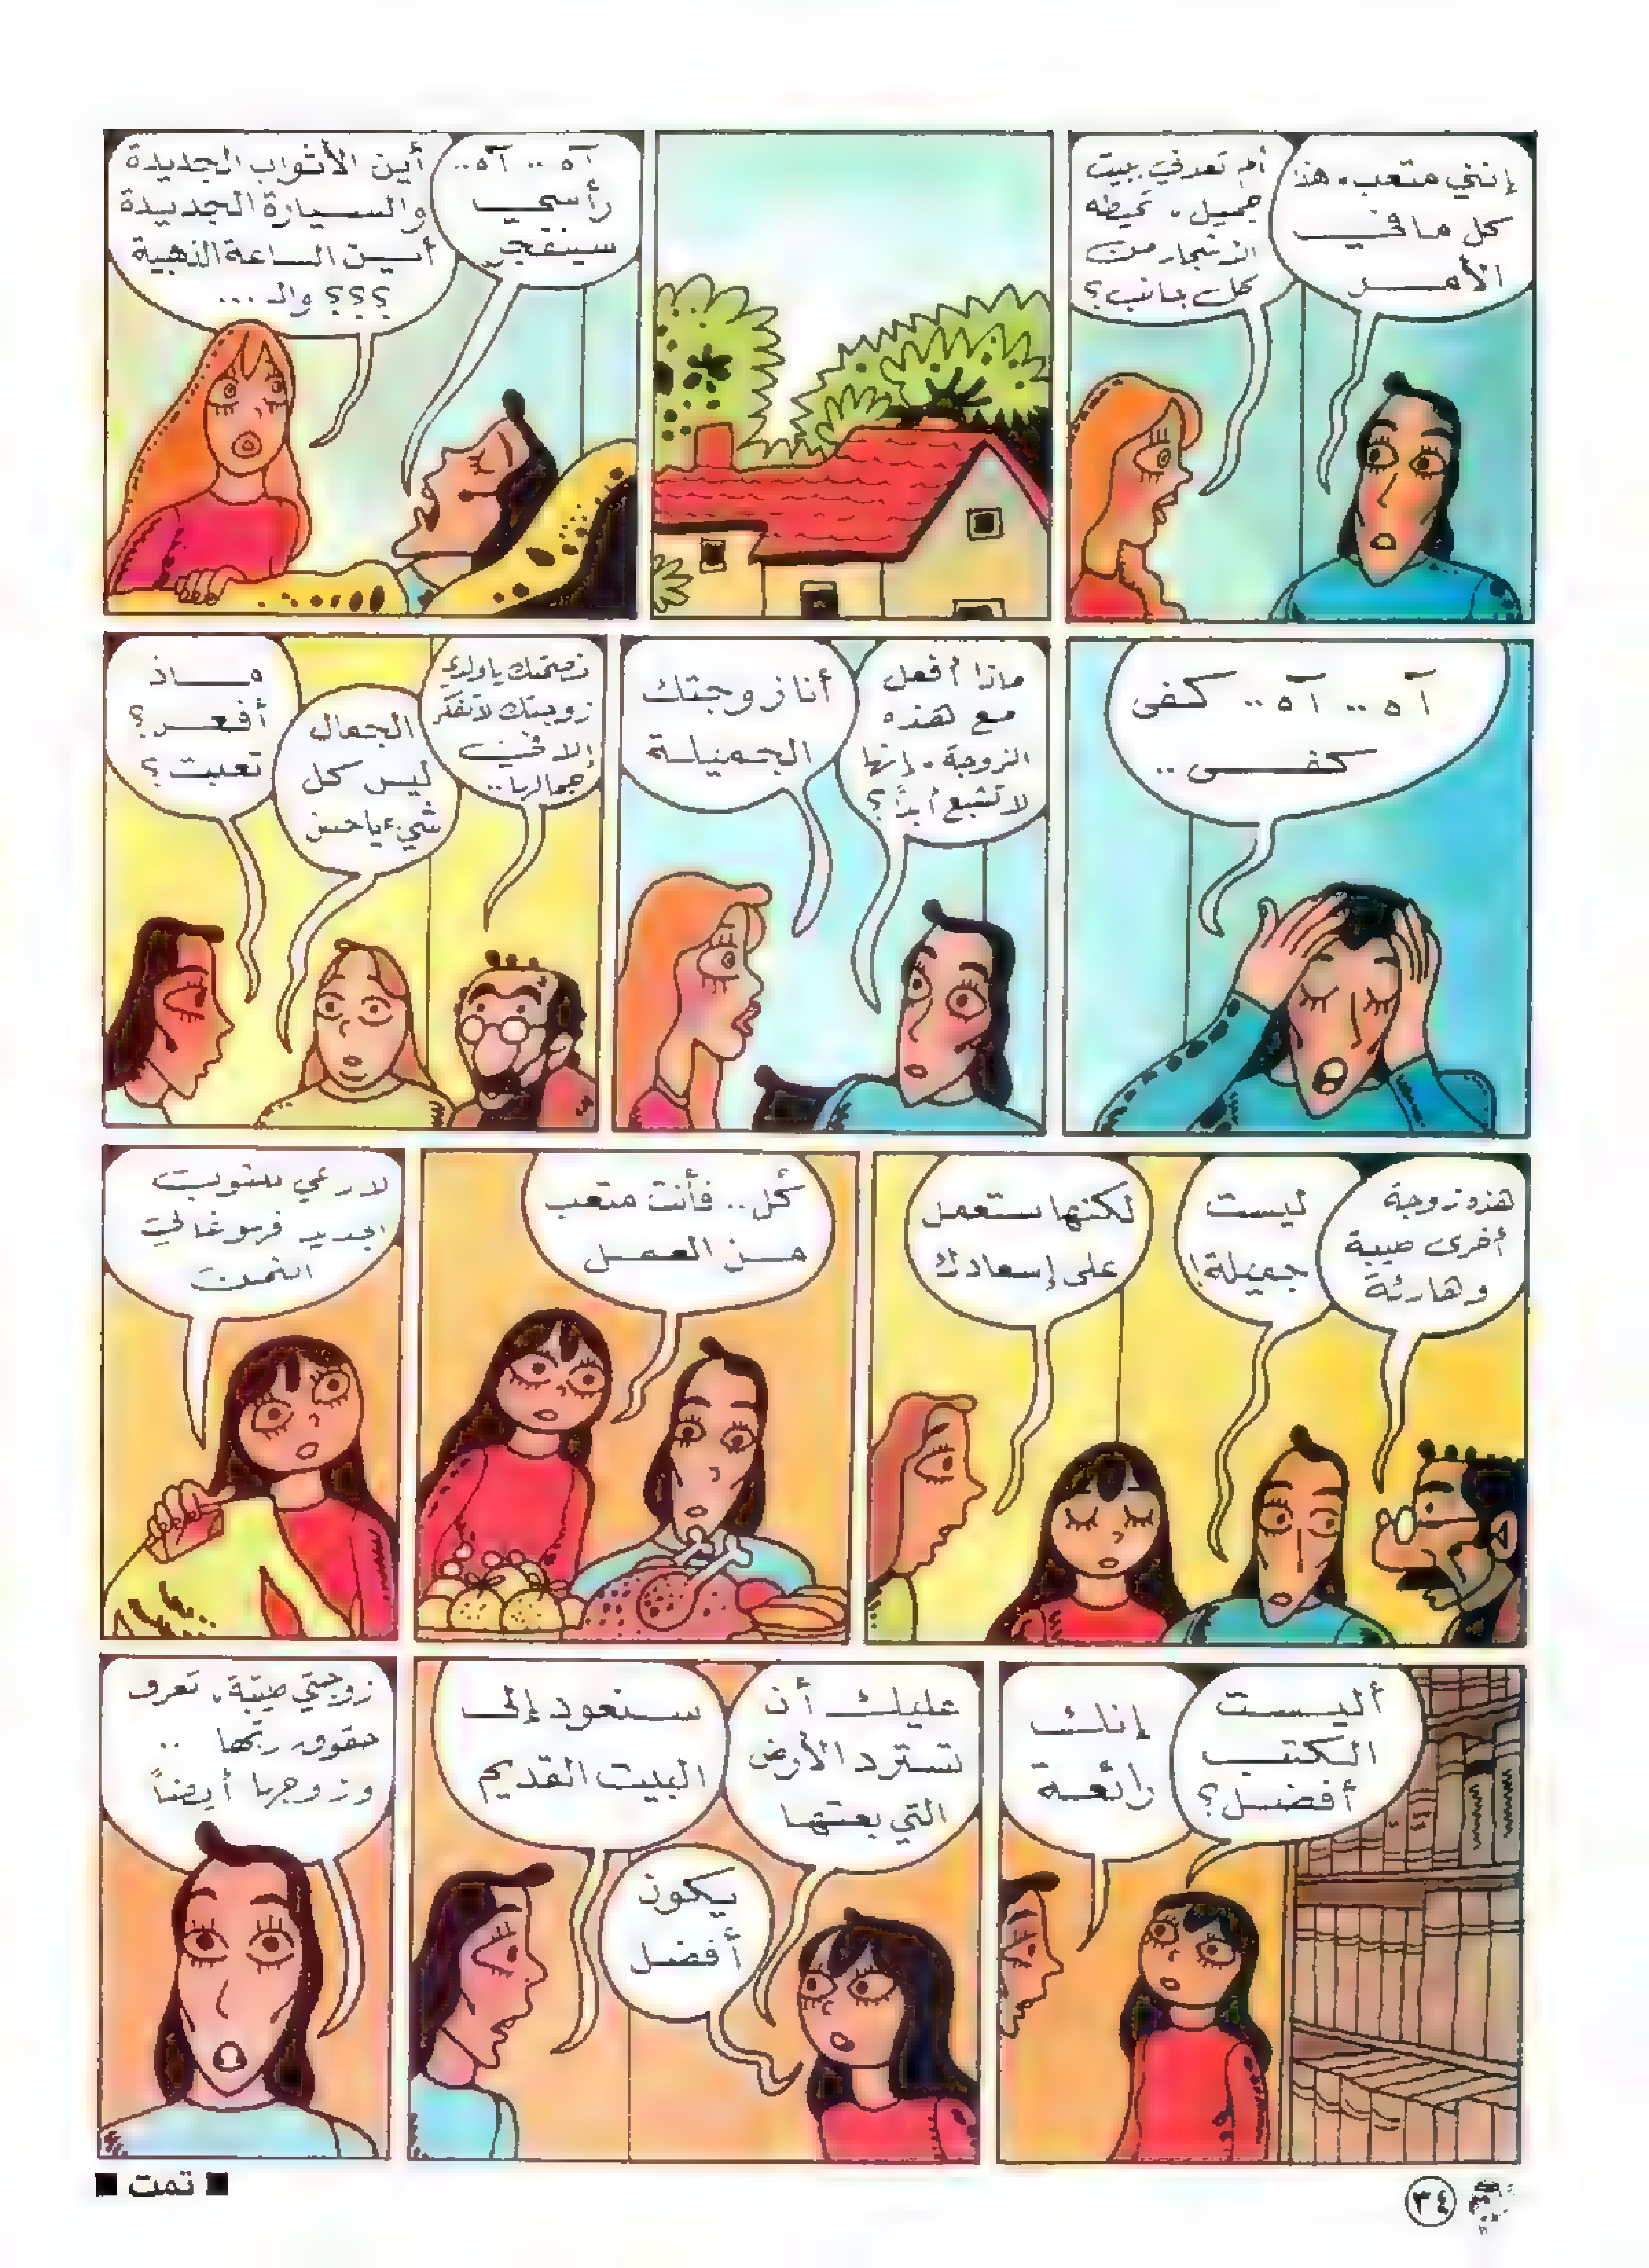 إنني متعب. هذا
كل ما في
الأمر
ألم تعدني ببيت
جميل. تحيطه
الأشجار من
كل جانب؟
آه .. آه ..
رأسي
سينفجر
أين الأثواب الجديدة
والسيارة الجديدة
أين الساعة الذهبية
؟؟؟ والـ ...
آه .. آه .. كفى
كفى ..
ماذا أفعل
مع هذه
الزوجة. إنها
لا تشبع أبداً؟
أنا زوجتك
الجميلة
نصحتك يا ولدي
زوجتك لا تفكر
إلا في
جمالها ..
الجمال
ليس كل
شيء يا حسن
ماذا
أفعل؟
تعبت؟
هذه زوجة
أخرى طيبة
وهادئة
ليست
جميلة!
لكنها ستعمل
على إسعادك
كُل .. فأنت متعب
من العمل
لا داعي للثوب
الجديد فهو غالي
الثمن
أليست
الكتب
أفضل؟
إنك
رائعة
عليك أن
تسترد الأرض
التي بعتها
سنعود إلى
البيت القديم
يكون
أفضل
زوجتي طيبة. تعرف
حقوق ربها ..
وزوجها أيضاً
٣٤
■ تمت ■